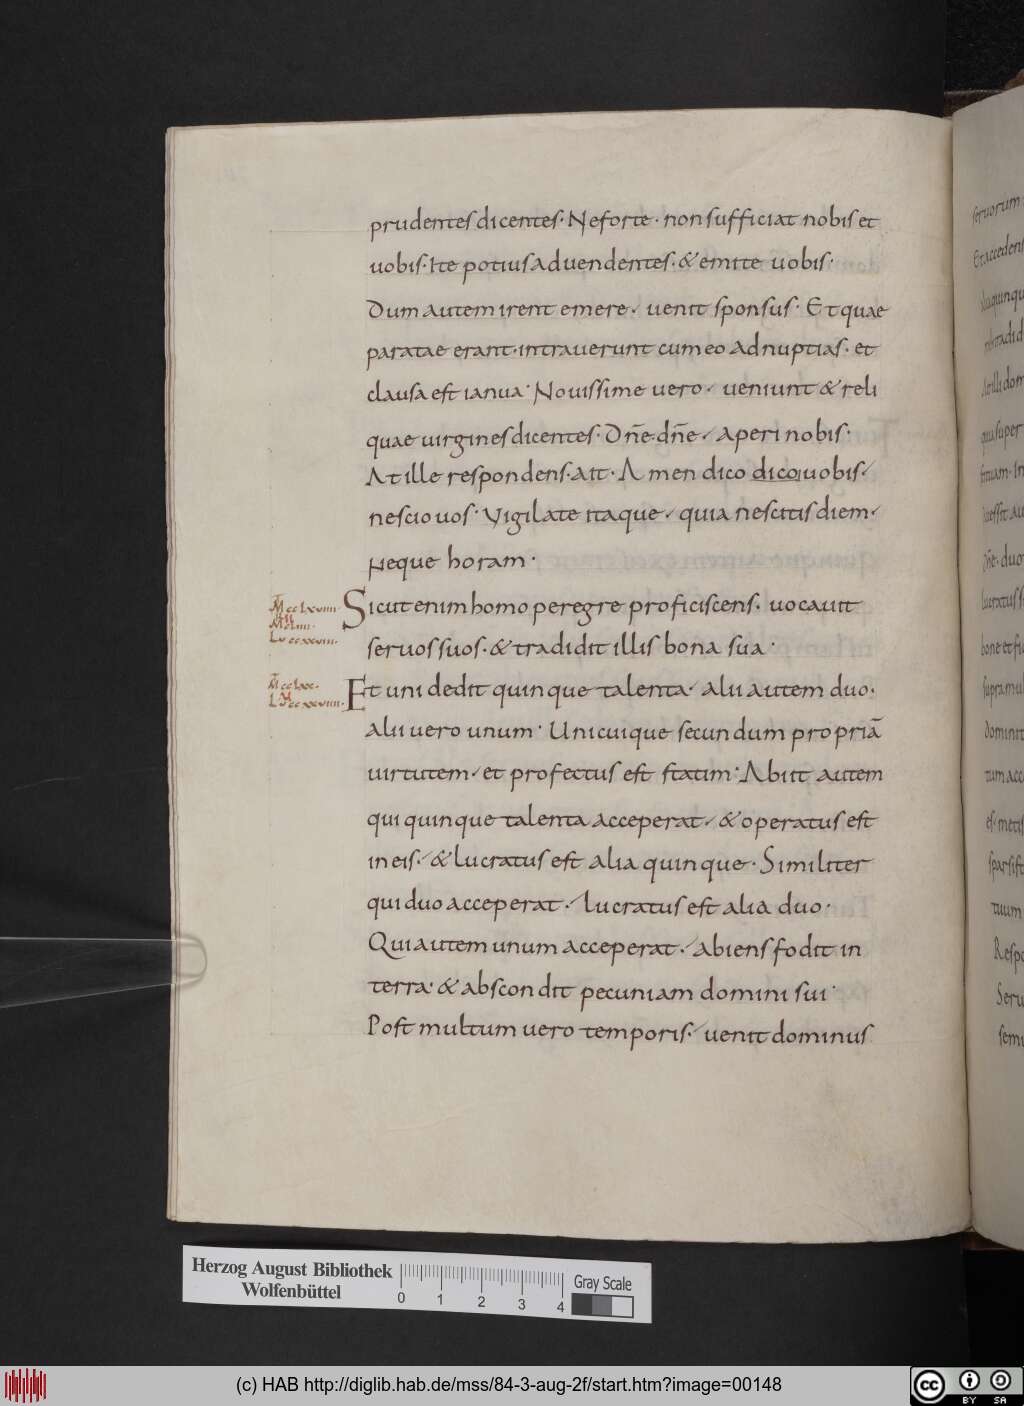 prudentes dicentes· Ne forte· non sufficiat nobis et
uobis· Ite potius ad uendentes· & emite uobis·
Dum autem irent emere· uenit sponsus· Et quae
paratae erant· intrauerunt cum eo ad nuptias· et
clausa est ianua· Nouissime uero· ueniunt & reli
quae uirgines dicentes· Dn̄e dn̄e· aperi nobis·
At ille respondens· ait· Amen dico dico uobis·
nescio uos· Vigilate itaque· quia nescitis diem·
Neque horam·
Sicut enim homo peregre proficiscens· uocauit
seruos suos· & tradidit illis bona sua·
Et uni dedit quinque talenta· alii autem duo·
alii uero unum· Unicuique secundum propriā
uirtutem· et profectus est statim· Abiit autem
qui quinque talenta acceperat· & operatus est
in eis· & lucratus est alia quinque· Similiter
qui duo acceperat· lucratus est alia duo·
Qui autem unum acceperat· abiens fodit in
terra· & abscondit pecuniam domini sui·
Post multum uero temporis· uenit dominus
Herzog August Bibliothek
Wolfenbüttel
0 1 2 3 4
Gray Scale
(c) HAB http://diglib.hab.de/mss/84-3-aug-2f/start.htm?image=00148
cc BY SA